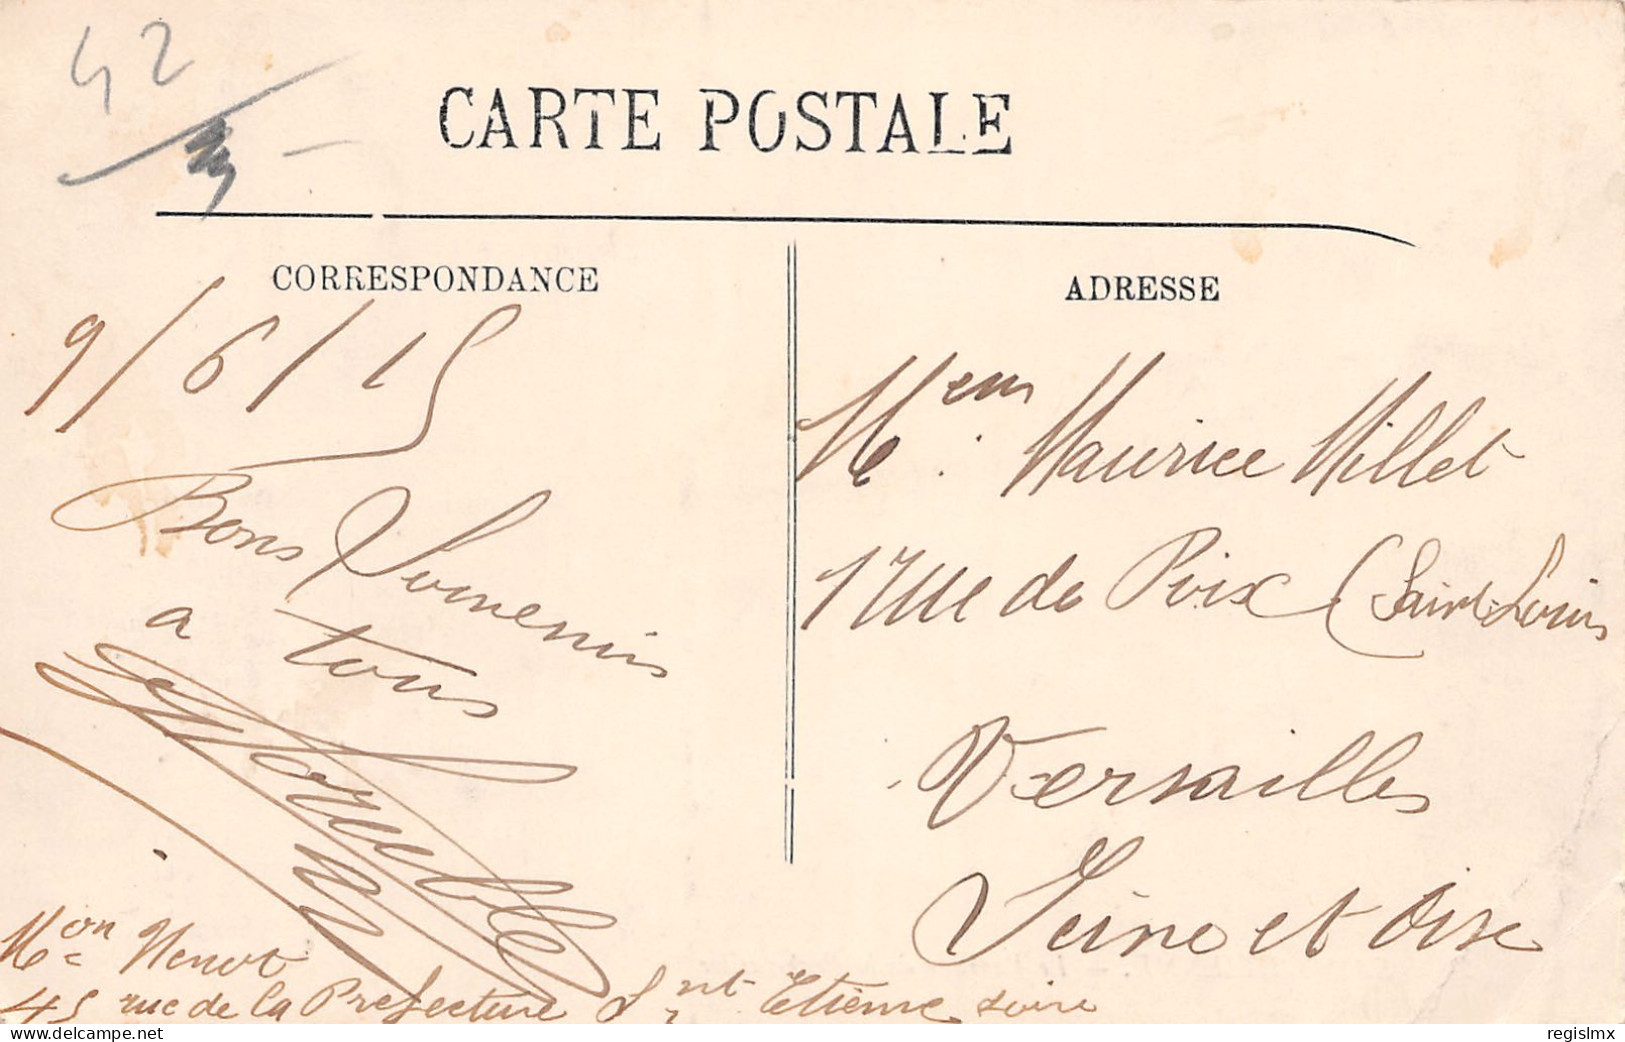 42
CARTE POSTALE
CORRESPONDANCE
9/6/15
Bons Souvenirs
a tous
Mon Menut
45 rue de la Prefecture Snt Etienne Loire
ADRESSE
Meur Maurice Millet
17 rue de Poix (Saint-Louis
Versailles
Seine et Oise
www.delcampe.net
regislmx